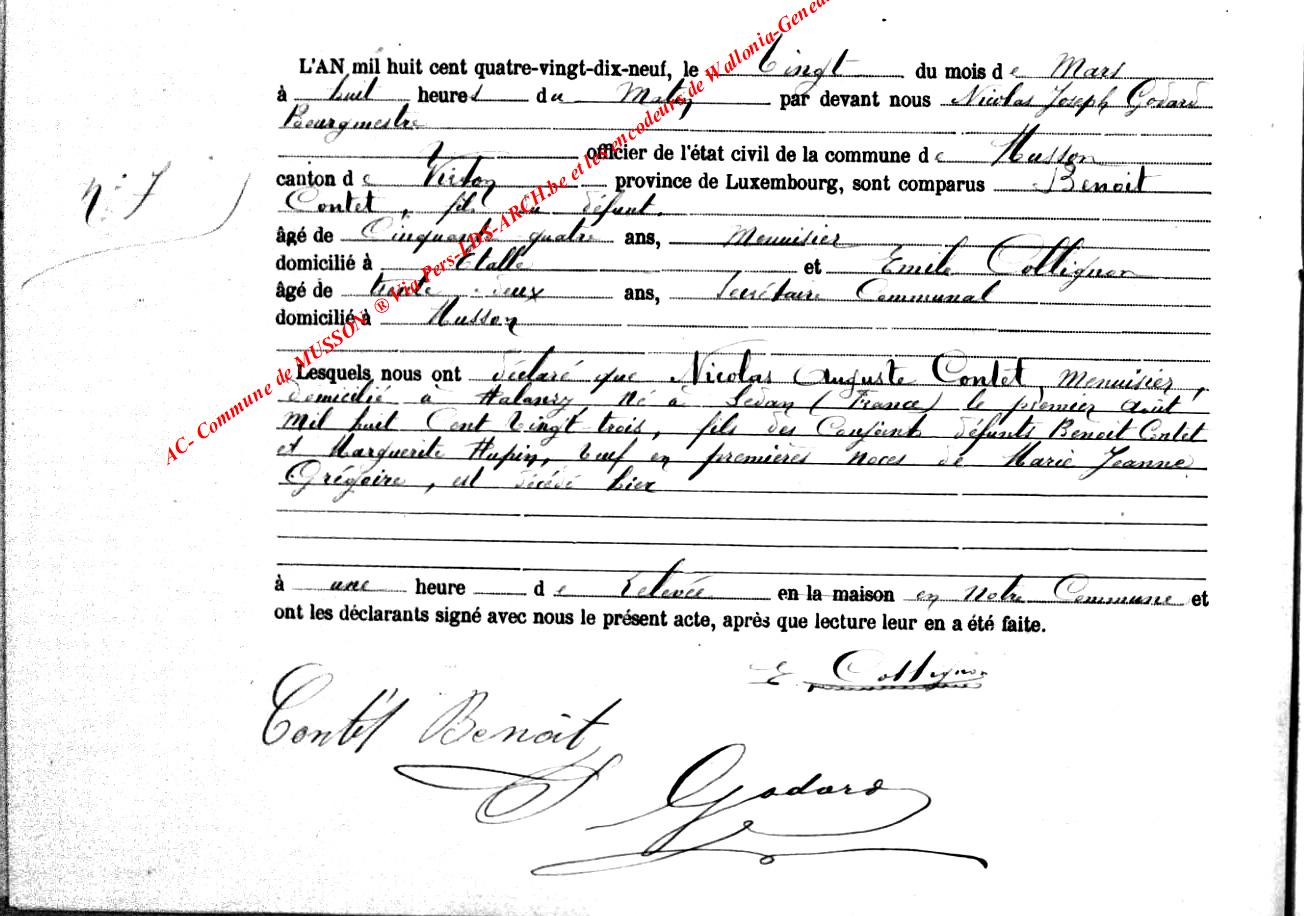 AC- Commune de MUSSON ® Via Pers-LDS-ARCH.be et les encodeurs de Wallonia-Geneal
L'AN mil huit cent quatre-vingt-dix-neuf, le Vingt du mois de Mars
à huit heures du Matin par devant nous Nicolas Joseph Godard
Bourgmestre
officier de l'état civil de la commune de Musson
N° 7
canton de Virton province de Luxembourg, sont comparus Benoit
Contet, fils du défunt.
âgé de Cinquante quatre ans, Menuisier
domicilié à Etalle et Emile Collignon
âgé de trente deux ans, Secrétaire Communal
domicilié à Musson
Lesquels nous ont déclaré que Nicolas Auguste Contet, Menuisier,
domicilié à Halanzy, Né à Sedan (France) le premier Août
Mil huit Cent Vingt trois, fils des Conjoints défunts Benoit Contet
et Marguerite Hupin, Veuf en premières Noces de Marie Jeanne
Grégoire, est décédé hier
à une heure de relevée en la maison en Notre Commune et
ont les déclarants signé avec nous le présent acte, après que lecture leur en a été faite.
E Collignon
Benoit
Godard